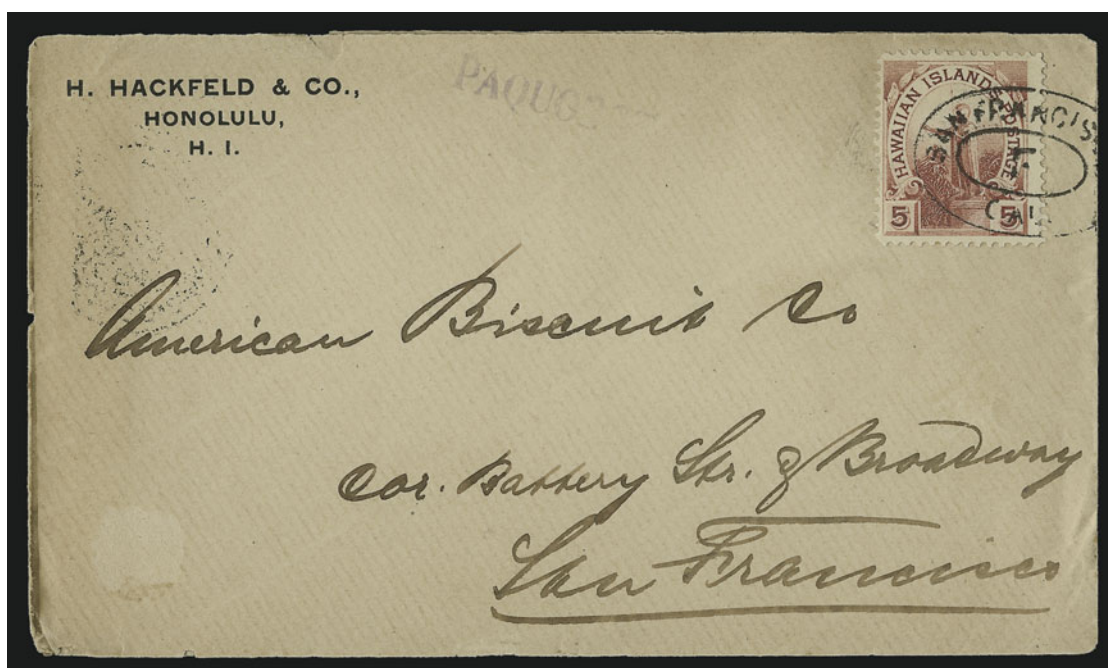 H. HACKFELD & CO.,
HONOLULU,
H. I.
HAWAIIAN ISLANDS POSTAGE
5 5
SAN FRANCIS
CAL
American Biscuit Co
Cor. Battery Str. & Broadway
San Francisco